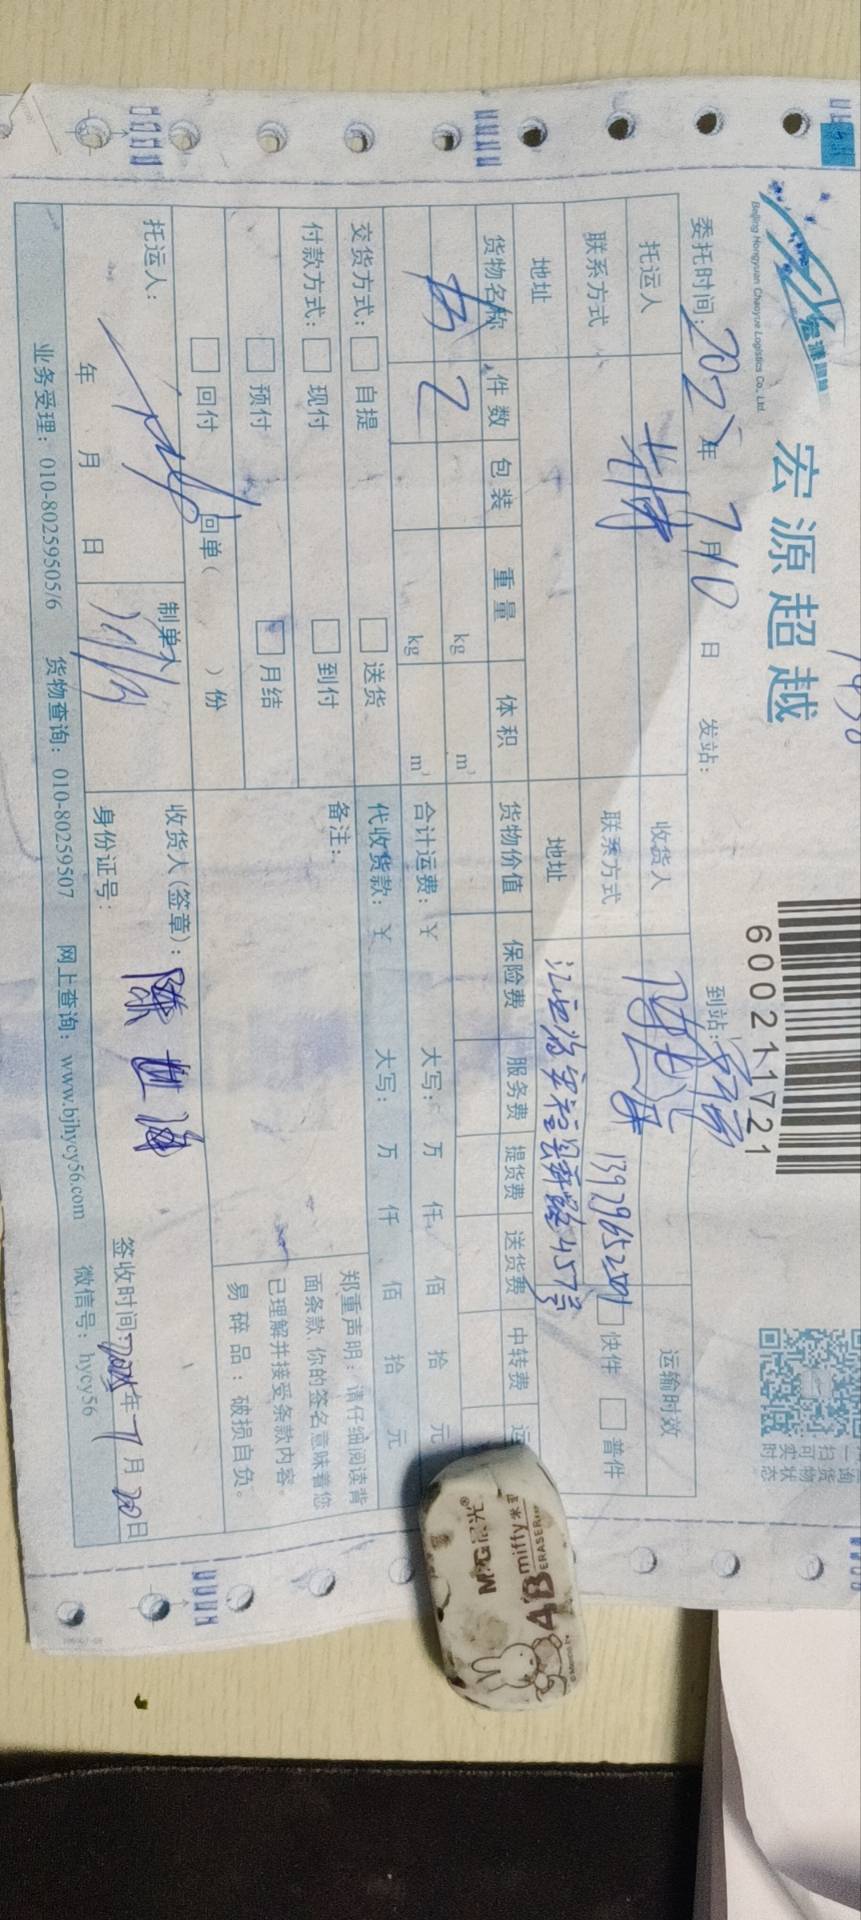 宏源超越
Beijing Hongyuan Chaoyue Logistics Co., Ltd.
600211721
委托时间: 2025 年 7 月 10 日 发站: 到站:
托运人 收货人 运输时效
联系方式 联系方式 快件 普件
地址 地址 457号
货物名称 件数 包装 重量 体积 货物价值 保险费 服务费 提货费 送货费 中转费
2 kg m³
kg m³ 合计运费: ¥ 大写: 万 仟 佰 拾 元
交货方式: 自提 送货 代收货款: ¥ 大写: 万 仟 佰 拾 元
付款方式: 现付 到付 备注:
预付 月结
回付 回单( )份
郑重声明:请仔细阅读背
面条款 你的签名意味着您
已理解并接受条款内容。
易碎品:破损自负。
托运人: 制单人 收货人(签章): 陈世海
年 月 日 身份证号: 签收时间: 2025年 7 月 20 日
业务受理: 010-80259505/6 货物查询: 010-80259507 网上查询: www.bjhycy56.com 微信号: hycy56
M&G晨光®
miffy米菲
4B ERASER